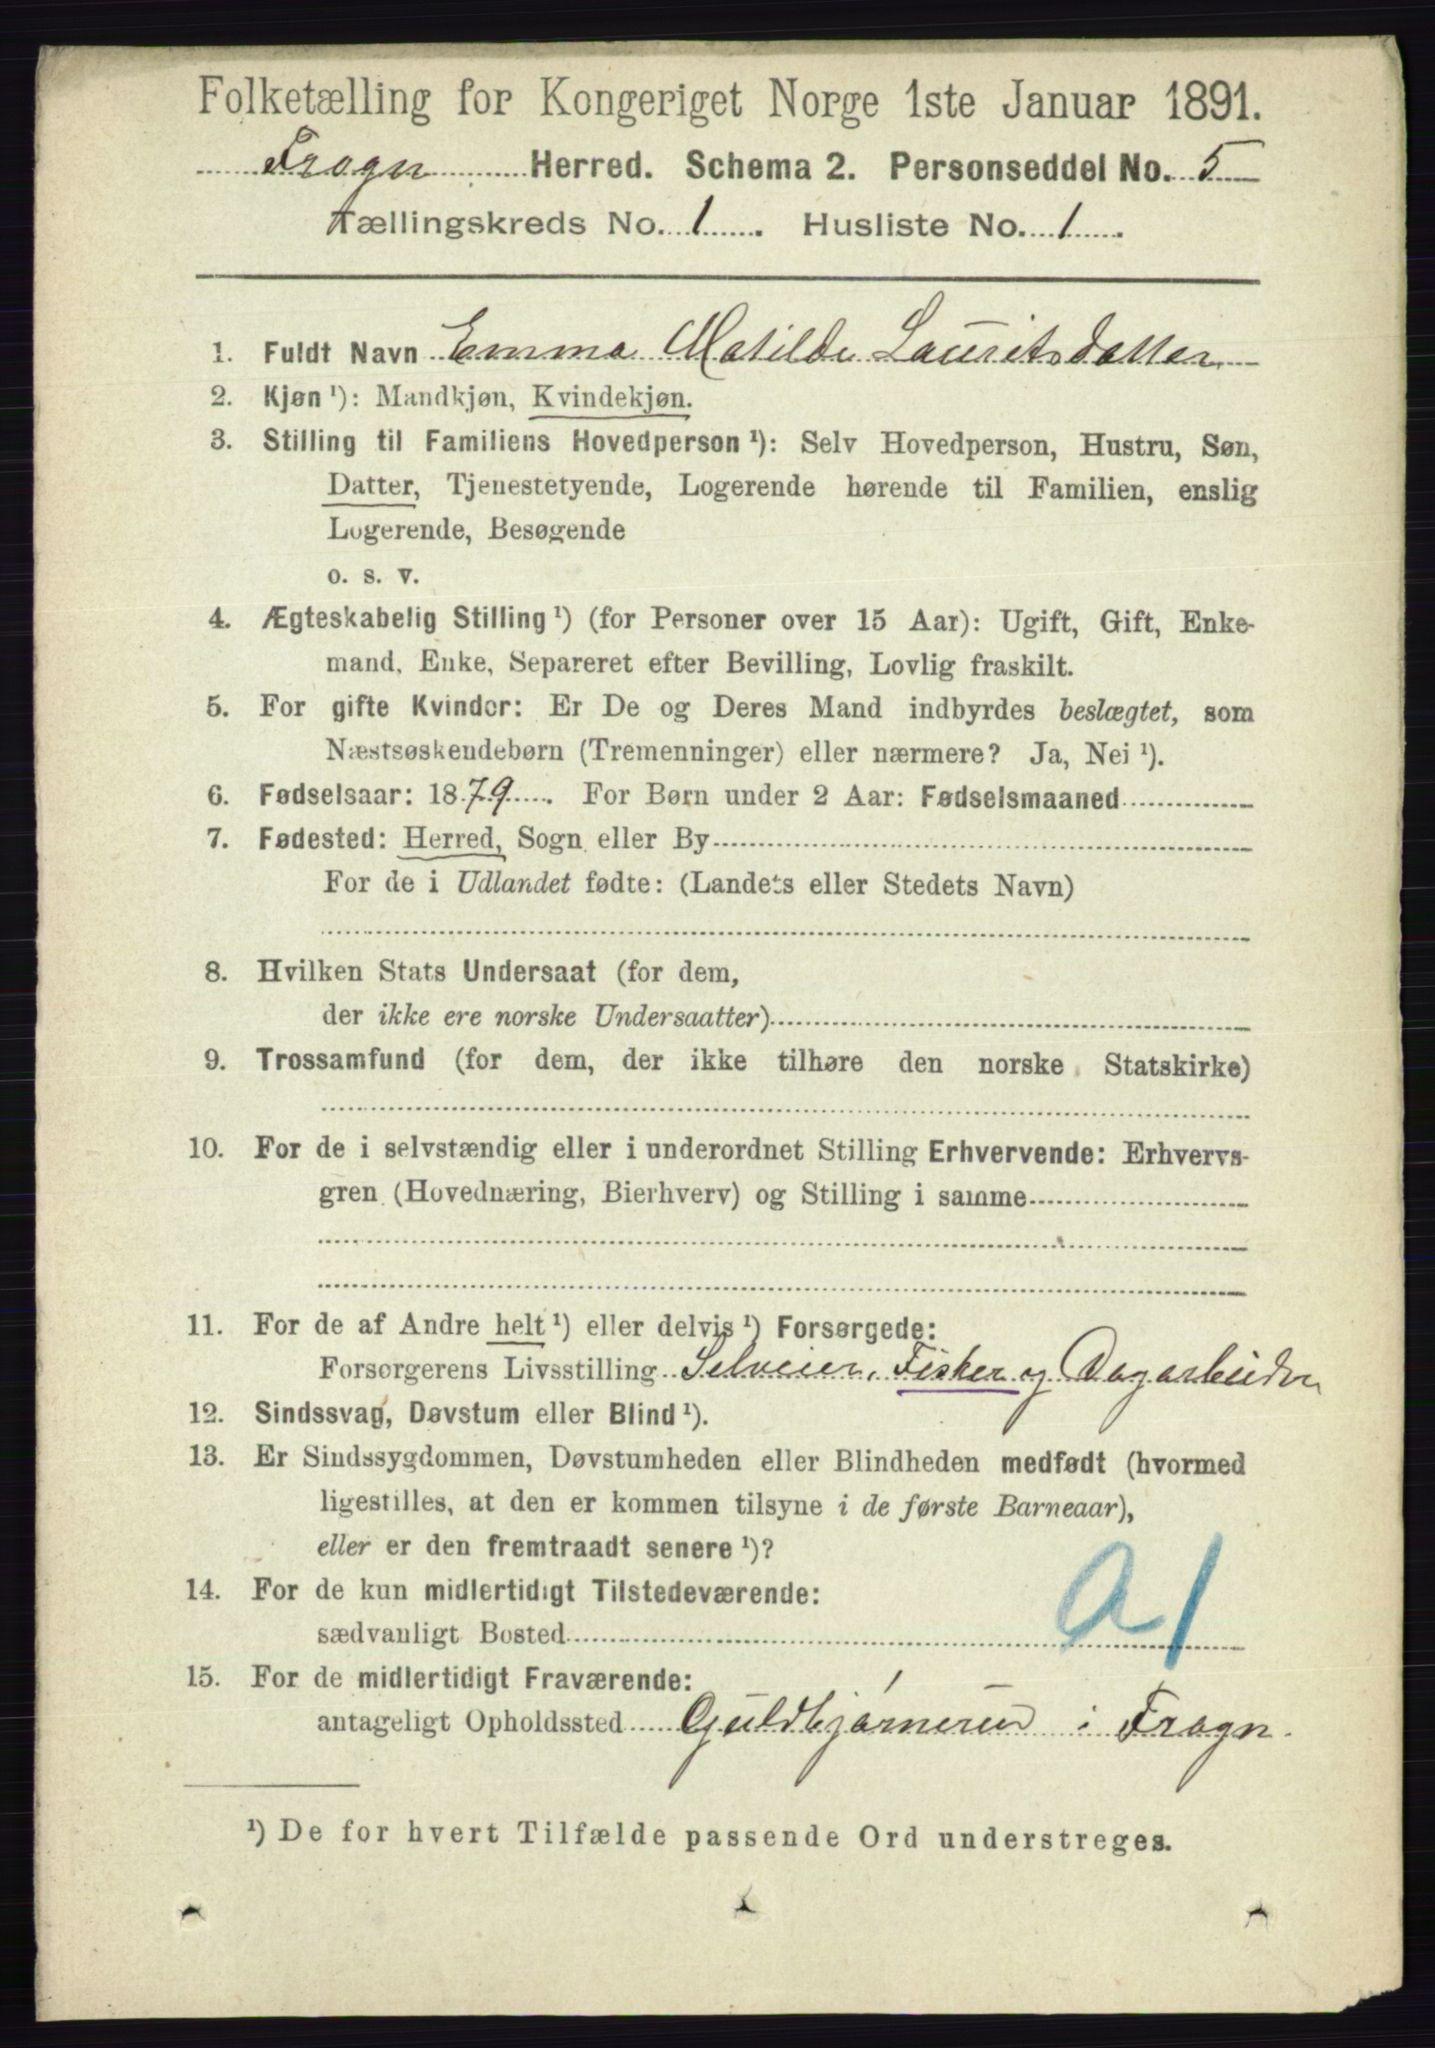 Folketælling for Kongeriget Norge 1ste Januar 1891.
Frogn Herred. Schema 2. Personseddel No. 5
Tællingskreds No. 1. Husliste No. 1.
1. Fuldt Navn Emma Matilde Lauritsdatter
2. Kjøn ¹): Mandkjøn, Kvindekjøn.
3. Stilling til Familiens Hovedperson ¹): Selv Hovedperson, Hustru, Søn,
Datter, Tjenestetyende, Logerende hørende til Familien, enslig
Logerende, Besøgende
o. s. v.
4. Ægteskabelig Stilling ¹) (for Personer over 15 Aar): Ugift, Gift, Enke-
mand, Enke, Separeret efter Bevilling, Lovlig fraskilt.
5. For gifte Kvinder: Er De og Deres Mand indbyrdes beslægtet, som
Næstsøskendebørn (Tremenninger) eller nærmere? Ja, Nei ¹).
6. Fødselsaar: 1879. For Børn under 2 Aar: Fødselsmaaned
7. Fødested: Herred, Sogn eller By
For de i Udlandet fødte: (Landets eller Stedets Navn)
8. Hvilken Stats Undersaat (for dem,
der ikke ere norske Undersaatter)
9. Trossamfund (for dem, der ikke tilhøre den norske Statskirke)
10. For de i selvstændig eller i underordnet Stilling Erhvervende: Erhvervs-
gren (Hovednæring, Bierhverv) og Stilling i samme
11. For de af Andre helt ¹) eller delvis ¹) Forsørgede:
Forsørgerens Livsstilling Selveier, Fisker og Dagarbeider
12. Sindssvag, Døvstum eller Blind ¹).
13. Er Sindssygdommen, Døvstumheden eller Blindheden medfødt (hvormed
ligestilles, at den er kommen tilsyne i de første Barneaar),
eller er den fremtraadt senere ¹)?
14. For de kun midlertidigt Tilstedeværende:
sædvanligt Bosted
a1
15. For de midlertidigt Fraværende:
antageligt Opholdssted Guldbjørnerud i Frogn.
¹) De for hvert Tilfælde passende Ord understreges.